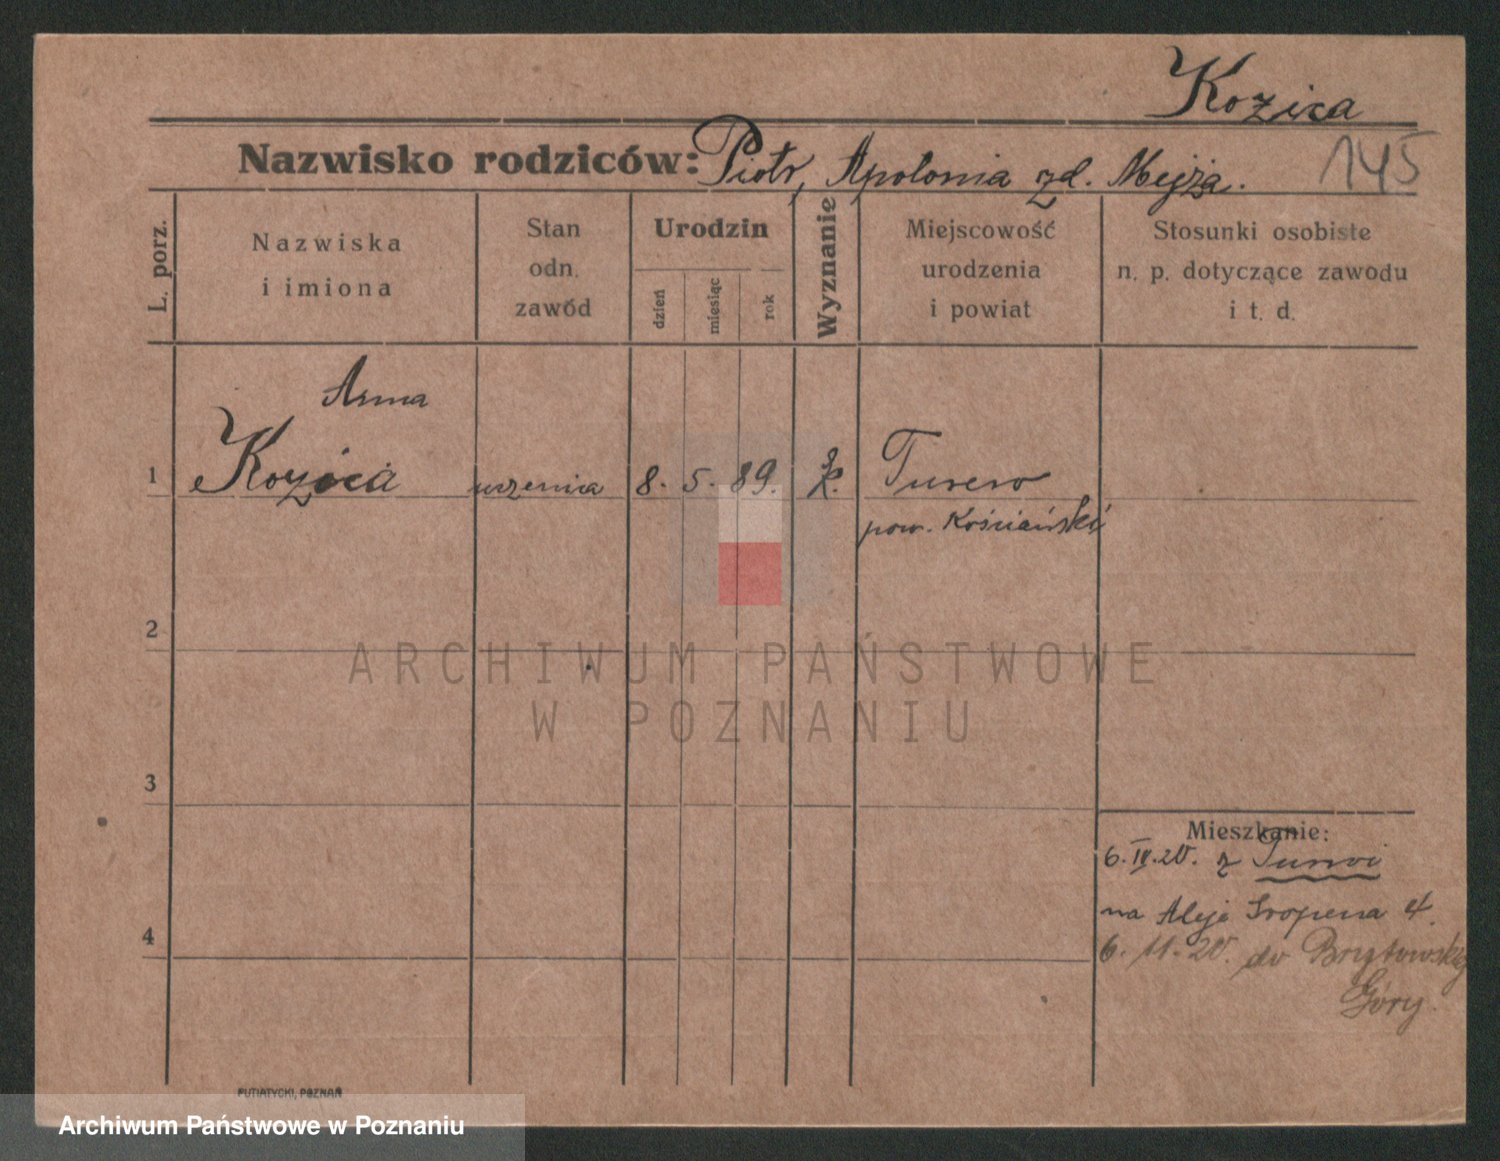 Kozica
Nazwisko rodziców: Piotr, Apolonia zd. Mejża.
145
L. porz.
Nazwiska
i imiona
Stan
odn.
zawód
Urodzin
dzień
miesiąc
rok
Wyznanie
Miejscowość
urodzenia
i powiat
Stosunki osobiste
n. p. dotyczące zawodu
i t. d.
Anna
1 Kozica uczenica 8. 5. 89. Turew
pow. Kościański
2
ARCHIWUM PAŃSTWOWE
W POZNANIU
3
Mieszkanie:
6. IV. 20. z Turwi
na Aleje 4.
4
6. 11. 20. do
Góry.
PUTIATYCKI, POZNAŃ
Archiwum Państwowe w Poznaniu